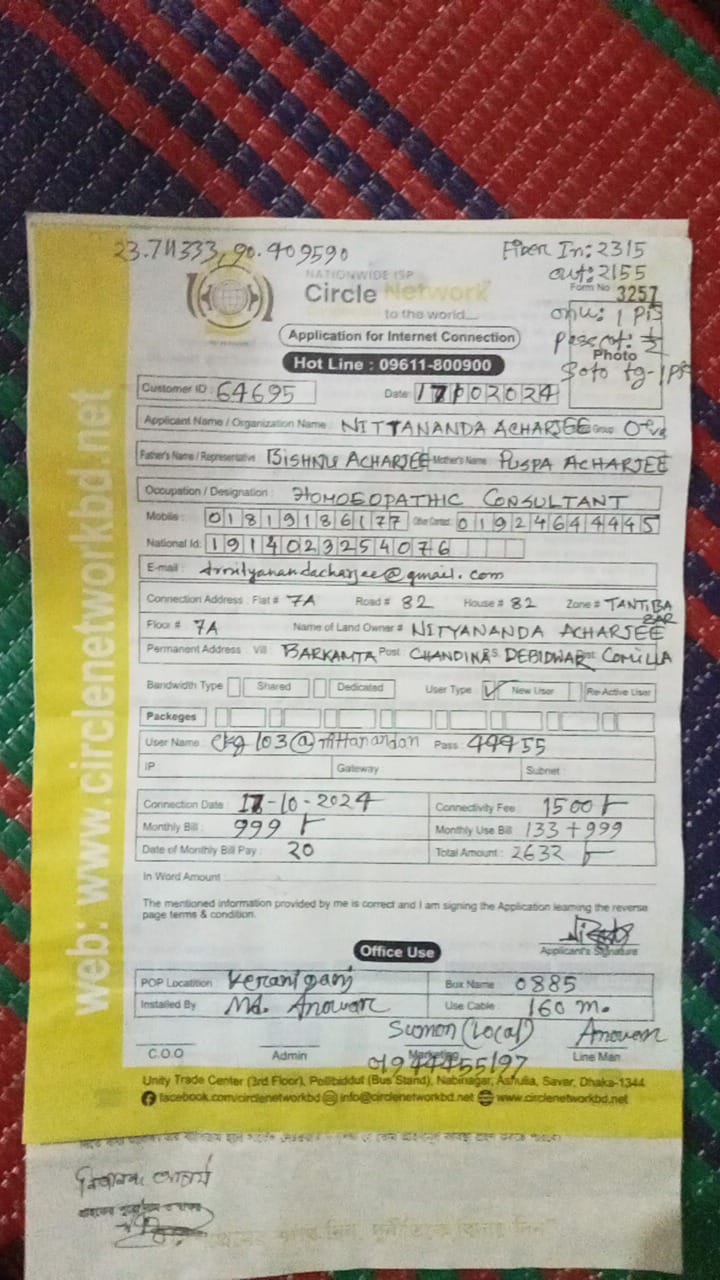 23.711333, 90.409590
Fiber In: 2315
out: 2155
NATIONWIDE ISP
Form No 3257
Circle Network
to the world....
onu: 1 pis
Photo
Application for Internet Connection
Hot Line : 09611-800900
Customer ID : 64695 Date: 17102024
Applicant Name / Organization Name : NITTANANDA ACHARJEE Group
Father's Name / Representative : BISHNU ACHARJEE Mother's Name : PUSPA ACHARJEE
Occupation / Designation : HOMOEOPATHIC CONSULTANT
Mobile : 01819186177 Other Contact 01924644445
National Id: 1914023254076
E-mail : drnityanandacharjee@gmail.com
Connection Address : Flat # 7A Road # 82 House # 82 Zone # TANTIBA
ZAR
Floor # 7A Name of Land Owner # NITYANANDA ACHARJEE
Permanent Address Vill : BARKAMTA Post CHANDINA P.S. DEBIDWAR Dist COMILLA
Bandwidth Type Shared Dedicated User Type : New User Re-Active User
Packeges
User Name : ckg103@nittanandan Pass 49955
IP : Gateway : Subnet :
Connection Date : 17-10-2024 Connectivity Fee : 1500
Monthly Bill : 999 Monthly Use Bill : 133 + 999
Date of Monthly Bill Pay : 20 Total Amount : 2632
In Word Amount :
The mentioned information provided by me is correct and I am signing the Application learning the reverse
page terms & condition.
Applicant's Signature
Office Use
POP Locatition Keraniganj Box Name 0885
Installed By Md. Anowar Use Cable : 160 m.
Sumon (Local) Anowar
C.O.O Admin Marketing Line Man
01944455197
Unity Trade Center (3rd Floor), Pollibiddut (Bus Stand), Nabinagar, Ashulia, Savar, Dhaka-1344
facebook.com/circlenetworkbd info@circlenetworkbd.net www.circlenetworkbd.net
web: www.circlenetworkbd.net